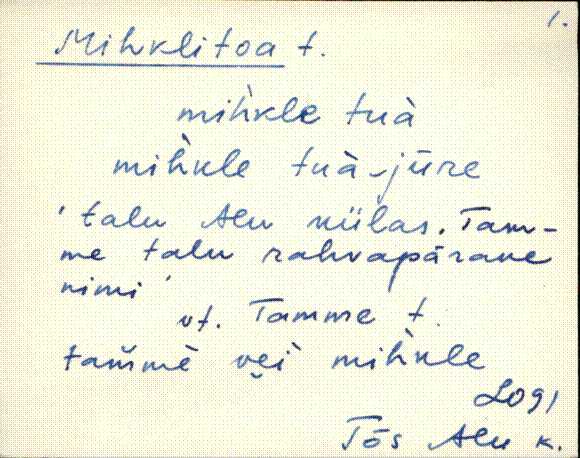 1.
Mihklitoa t.
mih̀kle tuà
mih̀kle tuà-jūre
'talu Alu külas. Tam-
me talu rahvapärane
nimi'
vt. Tamme t.
tam̆mè vęi mih̀kle
Logi
Tõs Alu k.